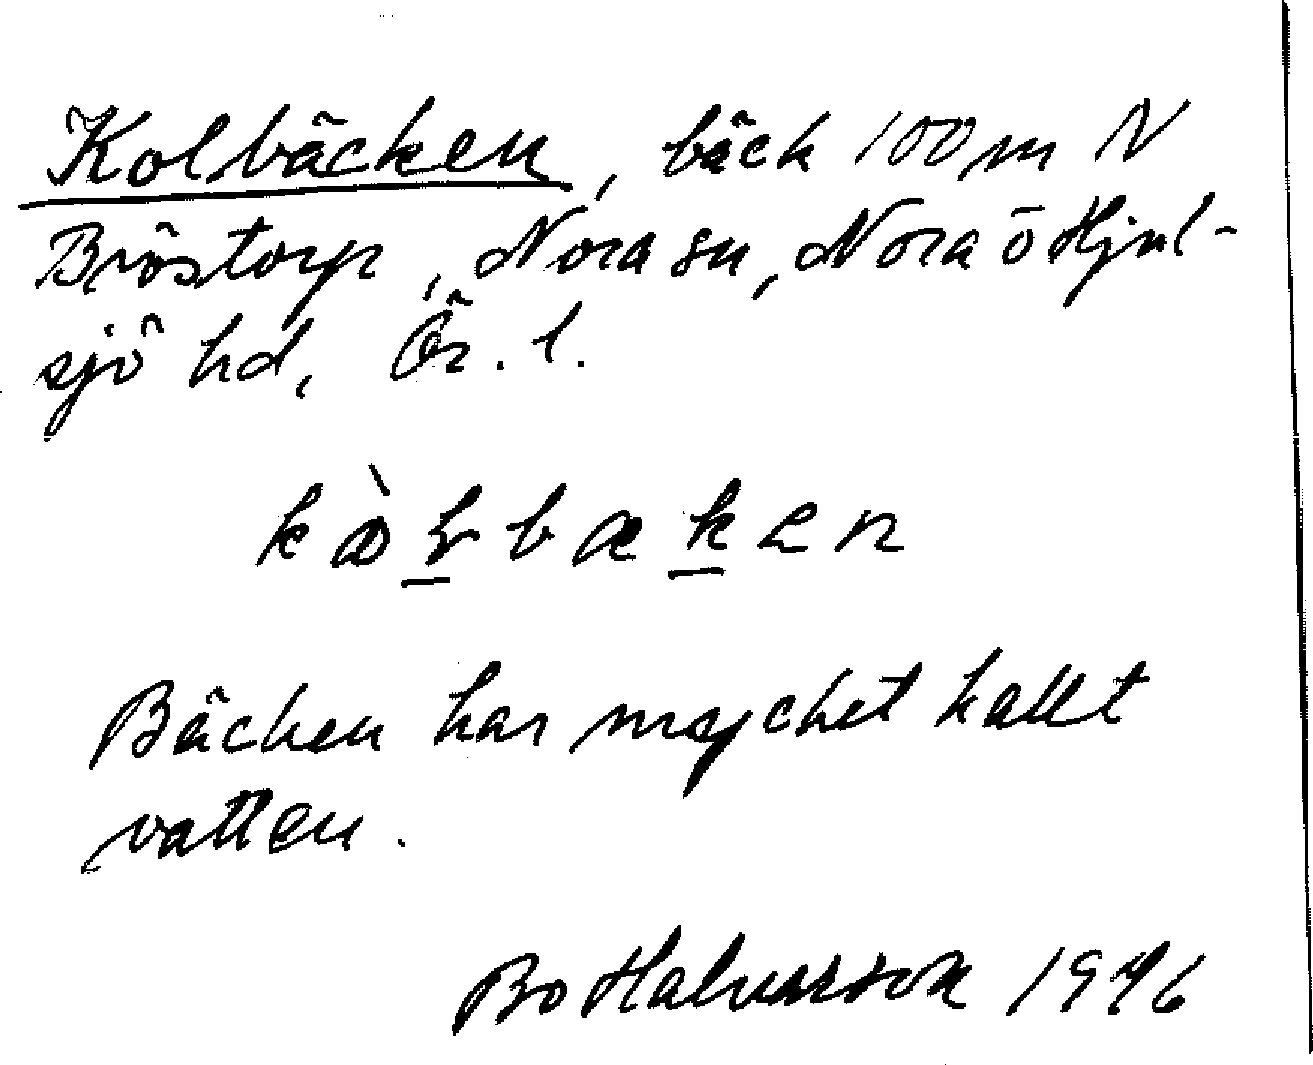 Kolbäcken, bäck 100 m N
Bröstorp, Nora sn, Nora o Hjul-
sjö hd, Ör. l.
Bäcken har mycket kallt
vatten.
Bo Halvarsson 1946